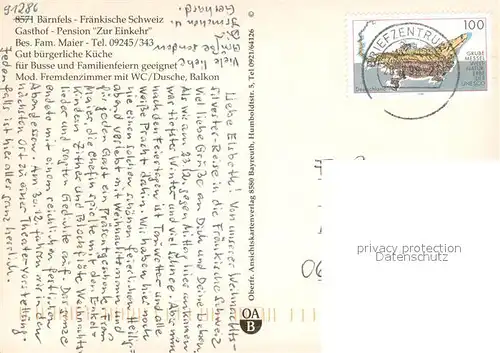 91286
8571 Bärnfels - Fränkische Schweiz
Gasthof - Pension "Zur Einkehr"
Bes. Fam. Maier - Tel. 09245/343
Gut bürgerliche Küche
für Busse und Familienfeiern geeignet
Mod. Fremdenzimmer mit WC/Dusche, Balkon
Liebe Elsbeth! Von unserer Weihnachts-
Silvester-Reise in die Fränkische Schweiz
viel liebe Grüße an Dich und Deine Lieben.
Als wir am 23.12. gegen Mittag hier ankamen
war tiefster Winter und viel Schnee. Aber nun
nach den Feiertagen ist Tauwetter und alle
weiße Pracht dahin. Wir haben hier noch
nie einen solchen schönen feierlichen Heilig-
abend verlebt mit Weihnachtsmann und
für jeden Gast ein Präsent geschenk. Frau
Maier die Chefin spielte mit den Enkel-
Kindern Zither und Blockflöte Weihnachts-
lieder und sagten Gedichte auf. Das Ganze
endete mit einem reichlichen festlichen
Abendessen. Am 30.12. fahren wir in den
nächsten Ort zu einer Theater-Vorstellung.
Jedenfalls ist hier alles ganz herrlich.
Viele liebe
Grüße senden
Dir
und
Gerhard
Oberfr. Ansichtskartenverlag 8580 Bayreuth, Humboldtstr. 5, Tel 0921/64126
OA
B
BRIEFZENTRUM
100
GRUBE
MESSEL
Deutschland
06
privacy protection
watermark